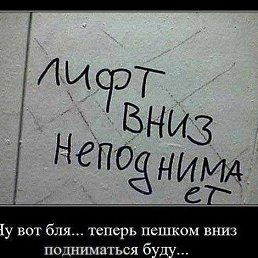 лифт
вниз
неподнима
ет
Ну вот бля... теперь пешком вниз
подниматься буду...